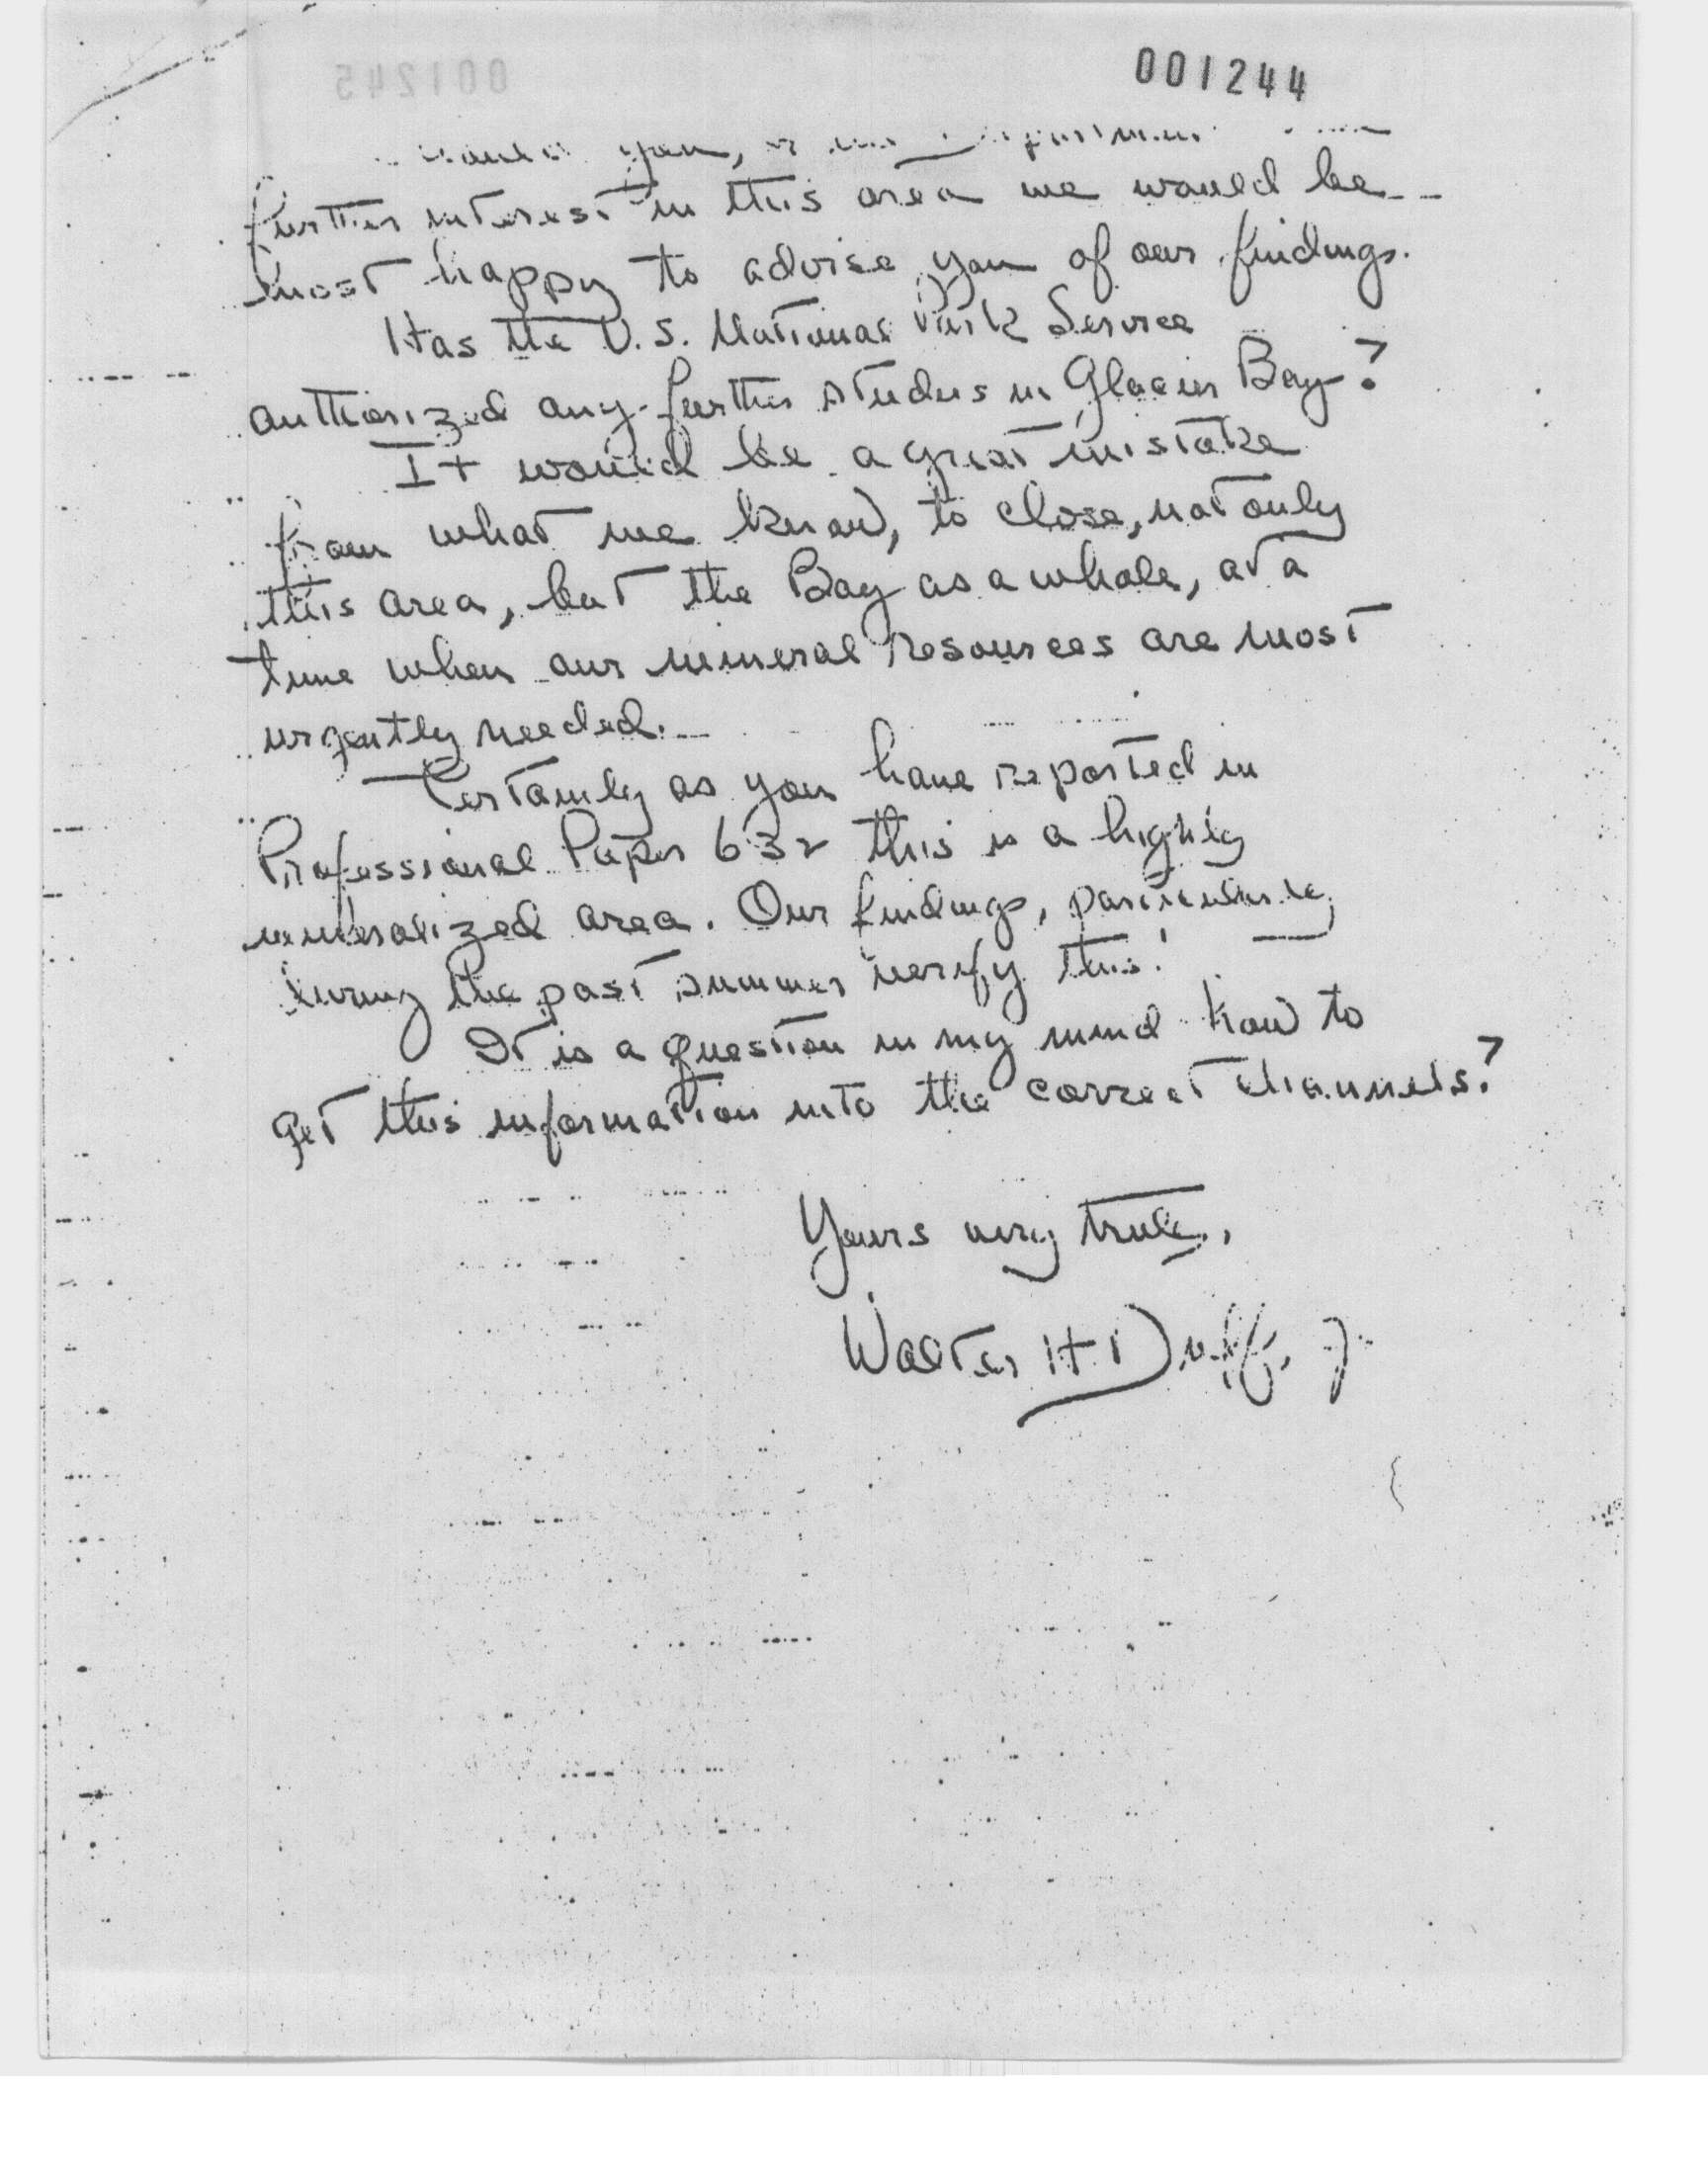 001244
001245
you,
further interest in this area we would be
most happy to advise you of our findings.
Has the U.S. National Park Service
authorized any further studies in Glacier Bay?
It would be a great mistake
from what we know, to close, not only
this area, but the Bay as a whole, at a
time when our mineral resources are most
urgently needed.
Certainly as you have reported in
Professional Paper 632 this is a highly
mineralized area. Our findings, particularly
during the past summer verify this!
It is a question in my mind how to
get this information into the correct channels?
Yours very truly,
Walter H Duffy, Jr.